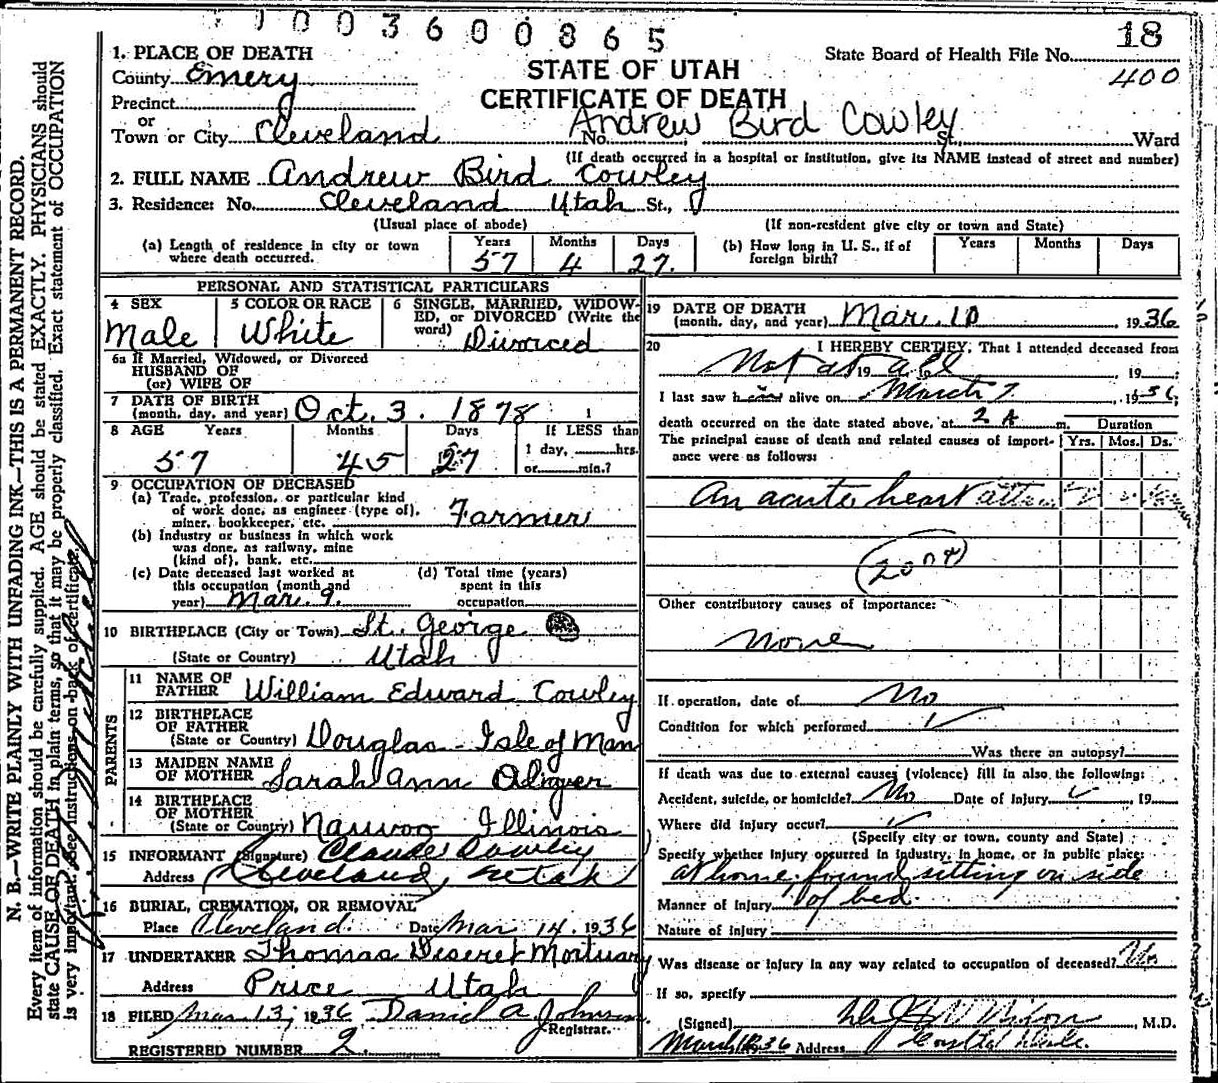 1003600865
18
State Board of Health File No.
400
1. PLACE OF DEATH
STATE OF UTAH
County Emery
CERTIFICATE OF DEATH
Precinct
or
Town or City Cleveland No. Andrew Bird Cowley St., Ward
(If death occurred in a hospital or institution, give its NAME instead of street and number)
2. FULL NAME Andrew Bird Cowley
3. Residence: No. Cleveland Utah St.,
(Usual place of abode) (If non-resident give city or town and State)
(a) Length of residence in city or town where death occurred. Years 57 Months 4 Days 27.
(b) How long in U. S., if of foreign birth? Years Months Days
PERSONAL AND STATISTICAL PARTICULARS
4 SEX Male
5 COLOR OR RACE White
6 SINGLE, MARRIED, WIDOWED, or DIVORCED (Write the word) Divorced
6a If Married, Widowed, or Divorced
HUSBAND OF
(or) WIFE OF
7 DATE OF BIRTH
(month, day, and year) Oct. 3. 1878
8 AGE Years Months Days If LESS than
57 27 1 day, hrs.
or min.?
9 OCCUPATION OF DECEASED
(a) Trade, profession, or particular kind
of work done, as engineer (type of),
miner, bookkeeper, etc. Farmer
(b) Industry or business in which work
was done, as railway, mine
(kind of), bank, etc.
(c) Date deceased last worked at
this occupation (month and
year) Mar. 9.
(d) Total time (years)
spent in this
occupation
10 BIRTHPLACE (City or Town) St. George
(State or Country) Utah
PARENTS
11 NAME OF
FATHER William Edward Cowley
12 BIRTHPLACE
OF FATHER
(State or Country) Douglas - Isle of Man
13 MAIDEN NAME
OF MOTHER Sarah Ann
14 BIRTHPLACE
OF MOTHER
(State or Country) Nauvoo Illinois
15 INFORMANT (Signature) Claude Cowley
Address Cleveland, Utah
16 BURIAL, CREMATION, OR REMOVAL
Place Cleveland. Date Mar 14. 1936
17 UNDERTAKER Thomas Deseret Mortuary
Address Price Utah
18 FILED Mar 13, 1936 Daniel A Johnson
Registrar.
REGISTERED NUMBER 2.
19 DATE OF DEATH
(month, day, and year) Mar. 10, 1936
20 I HEREBY CERTIFY, That I attended deceased from
Not at 19 all , 19
I last saw h alive on March 7, 1936,
death occurred on the date stated above, at 2 A m. Duration
The principal cause of death and related causes of importance were as follows: Yrs. Mos. Ds.
An acute heart
Other contributory causes of importance:
None
If operation, date of No
Condition for which performed
Was there an autopsy?
If death was due to external causes (violence) fill in also the following:
Accident, suicide, or homicide? No Date of injury , 19
Where did injury occur?
(Specify city or town, county and State)
Specify whether injury occurred in industry, in home, or in public place:
at home, found sitting on side
Manner of injury of bed.
Nature of injury
Was disease or injury in any way related to occupation of deceased? No
If so, specify
(Signed) , M.D.
Address
N. B.—WRITE PLAINLY WITH UNFADING INK—THIS IS A PERMANENT RECORD.
Every item of information should be carefully supplied. AGE should be stated EXACTLY. PHYSICIANS should
state CAUSE OF DEATH in plain terms, so that it may be properly classified. Exact statement of OCCUPATION
is very important. See instructions on back of certificate.